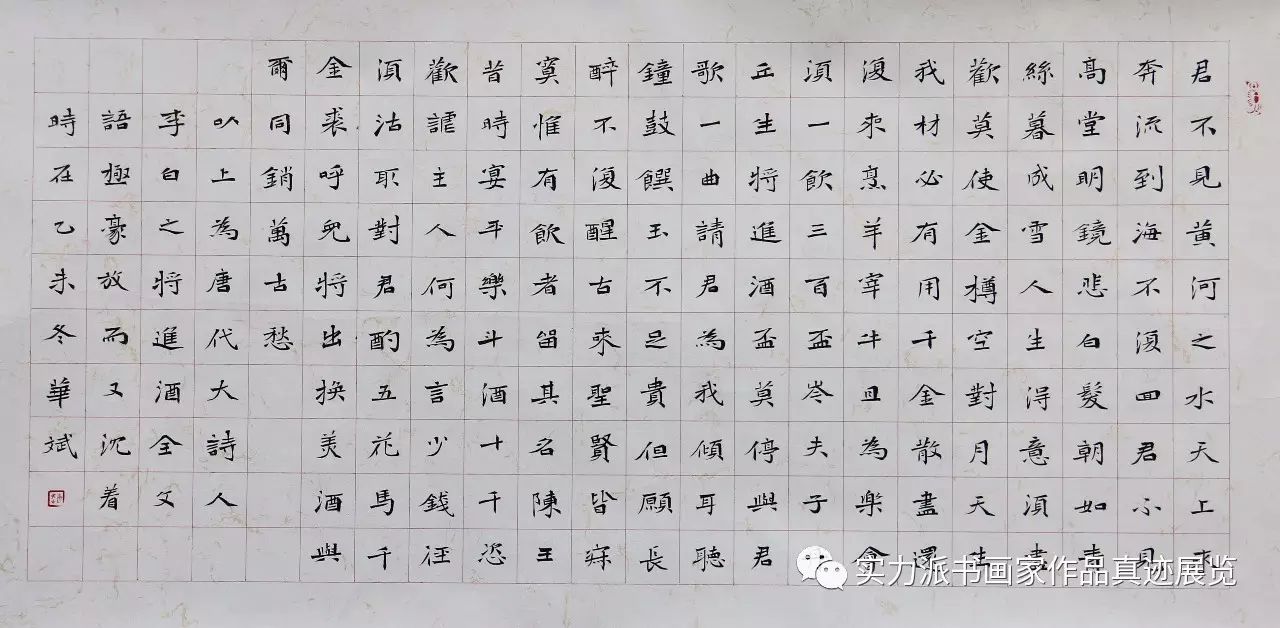 君不見黃河之水天上來
奔流到海不復回君不見
高堂明鏡悲白髮朝如青
絲暮成雪人生得意須盡
歡莫使金樽空對月天生
我材必有用千金散盡還
復來烹羊宰牛且為樂會
須一飲三百盃岑夫子
丘生將進酒盃莫停與君
歌一曲請君為我傾耳聽
鐘鼓饌玉不足貴但願長
醉不復醒古來聖賢皆寂
寞惟有飲者留其名陳王
昔時宴平樂斗酒十千恣
歡謔主人何為言少錢徑
須沽取對君酌五花馬千
金裘呼兒將出換美酒與
爾同銷萬古愁
以上為唐代大詩人
李白之將進酒全文
語極豪放而又沉着
時在乙未冬華斌
实力派书画家作品真迹展览